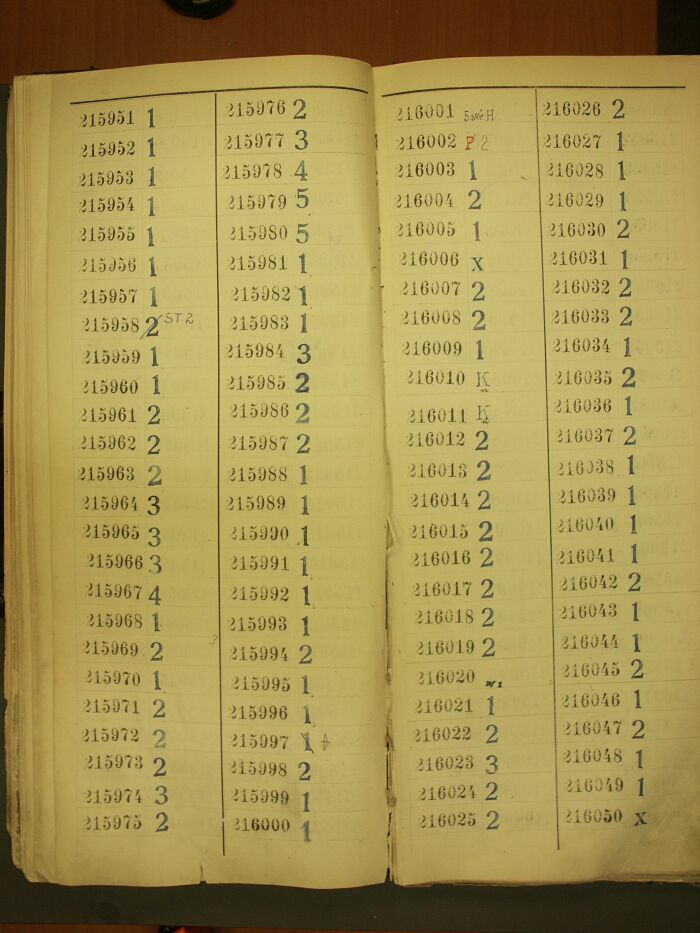 215951 1
215952 1
215953 1
215954 1
215955 1
215956 1
215957 1
215958 2 ST 2
215959 1
215960 1
215961 2
215962 2
215963 2
215964 3
215965 3
215966 3
215967 4
215968 1
215969 2
215970 1
215971 2
215972 2
215973 2
215974 3
215975 2
215976 2
215977 3
215978 4
215979 5
215980 5
215981 1
215982 1
215983 1
215984 3
215985 2
215986 2
215987 2
215988 1
215989 1
215990 1
215991 1
215992 1
215993 1
215994 2
215995 1
215996 1
215997 1
215998 2
215999 1
216000 1
216001
216002 P 2
216003 1
216004 2
216005 1
216006 x
216007 2
216008 2
216009 1
216010 K
216011 K
216012 2
216013 2
216014 2
216015 2
216016 2
216017 2
216018 2
216019 2
216020
216021 1
216022 2
216023 3
216024 2
216025 2
216026 2
216027 1
216028 1
216029 1
216030 2
216031 1
216032 2
216033 2
216034 1
216035 2
216036 1
216037 2
216038 1
216039 1
216040 1
216041 1
216042 2
216043 1
216044 1
216045 2
216046 1
216047 2
216048 1
216049 1
216050 x